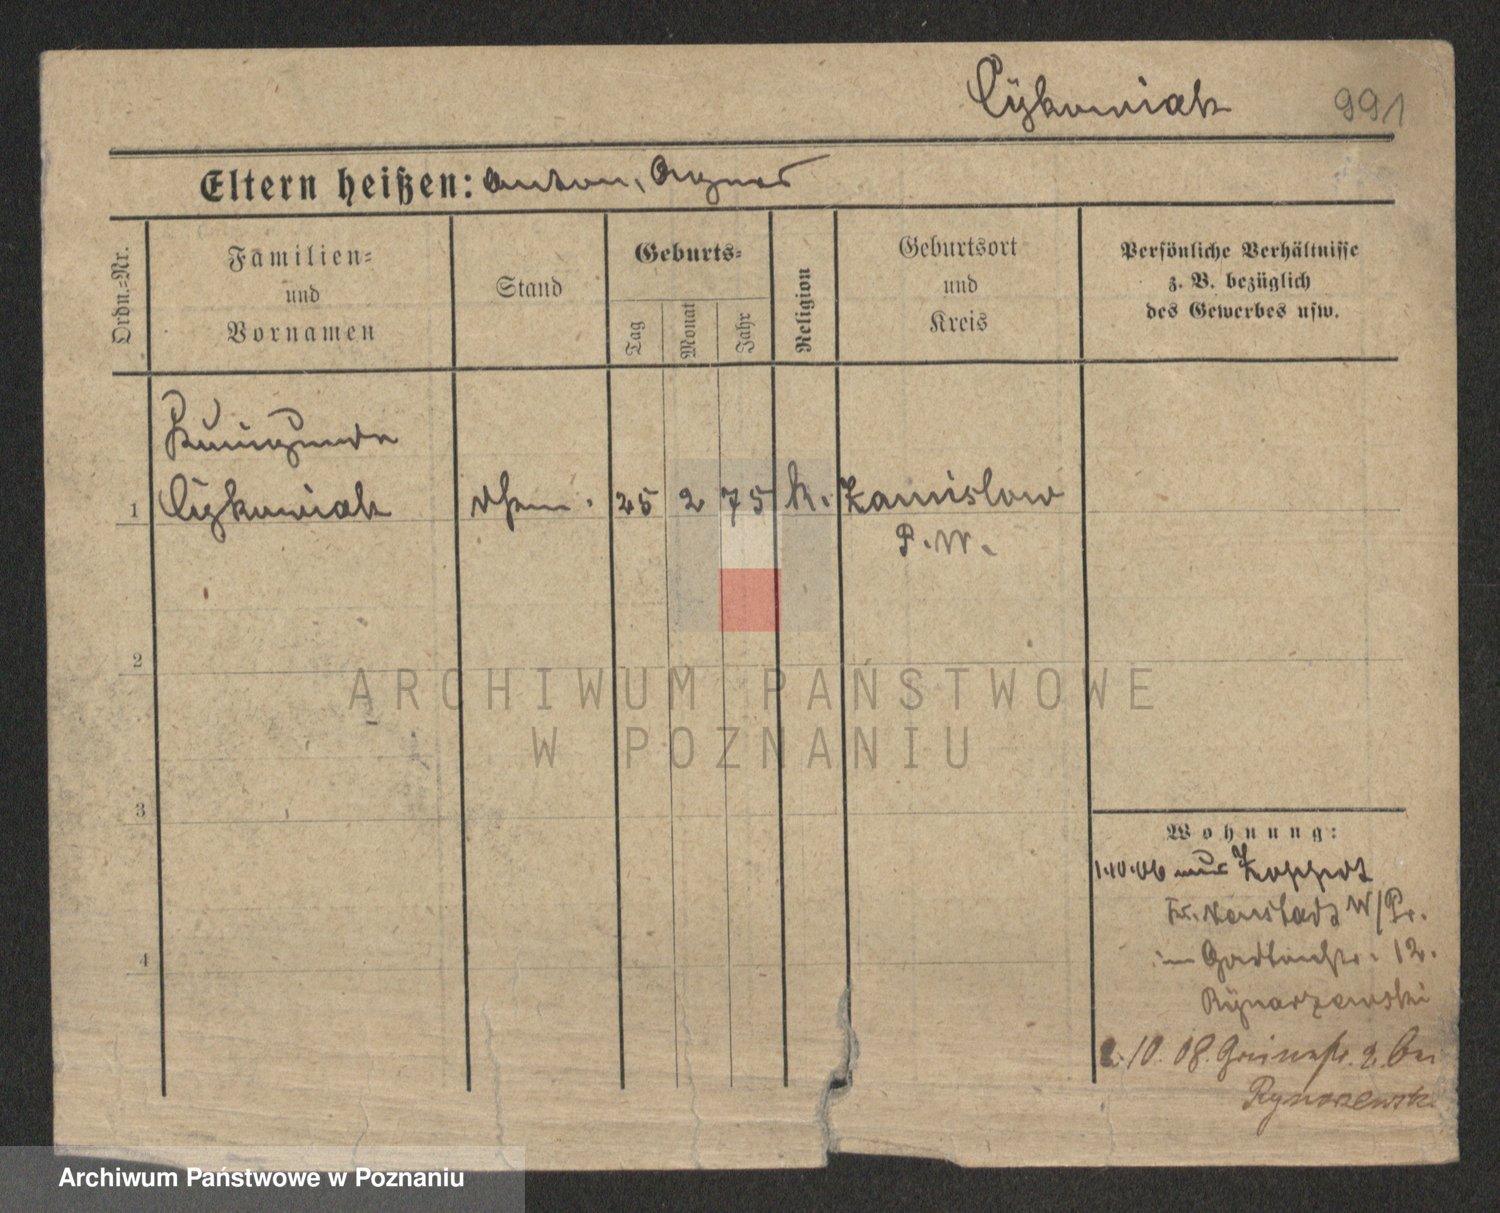 Cykowiak 991
Eltern heißen: Anton, Agnes
Ordn.=Nr.
Familien=
und
Vornamen
Stand
Geburts=
Tag
Monat
Jahr
Religion
Geburtsort
und
Kreis
Persönliche Verhältnisse
z. B. bezüglich
des Gewerbes usw.
Kunigunde
1 Cykowiak 25 2 75 k. Zanislow
P. W.
2
3
4
Wohnung:
1.10.06 aus Zoppot
Kr. Neustadt W/Pr.
12.
Rynarzewski
2.10.08. 2. bei
Rynarzewski
ARCHIWUM PAŃSTWOWE
W POZNANIU
Archiwum Państwowe w Poznaniu